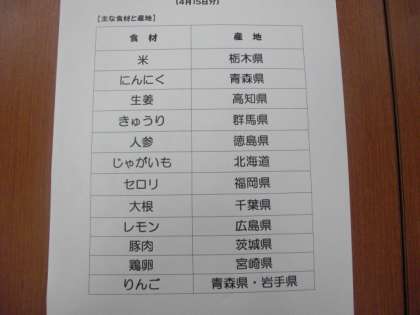 (4月15日分)
【主な食材と産地】
食材 産地
米 栃木県
にんにく 青森県
生姜 高知県
きゅうり 群馬県
人参 徳島県
じゃがいも 北海道
セロリ 福岡県
大根 千葉県
レモン 広島県
豚肉 茨城県
鶏卵 宮崎県
りんご 青森県・岩手県